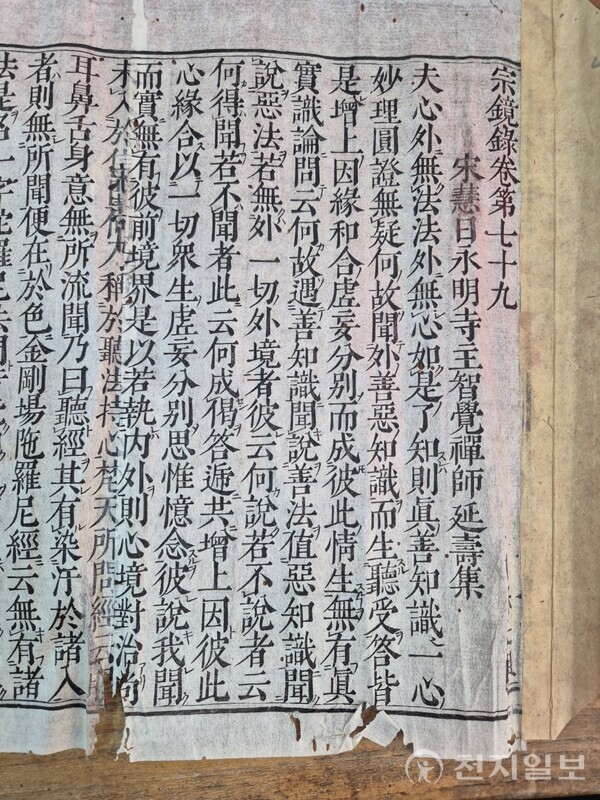 宗鏡錄卷第七十九
宋慧日永明寺主智覺禪師延壽集
夫心外無法法外無心如是了知則眞善知識一心
妙理圓證無疑何故聞外善惡知識而生聽受答皆
是增上因緣和合虛妄分別而成彼此情生無有眞
實識論問云何故遇善知識聞說善法値惡知識聞
說惡法若無外一切外境者彼云何說若不說者云
何得聞若不聞者此云何成偈答遞共增上因彼此
心緣合以一切衆生虛妄分別思惟憶念彼說我聞
而實無有彼前境界是以若執內外則心境對治尚
未入於
稱於聽法
梵天所問經云
耳鼻舌身意無所流聞乃曰聽經其有染汙於諸入
者則無所聞便在於色金剛場陁羅尼經云無有諸
法是
一字陀羅尼法門
천지일보